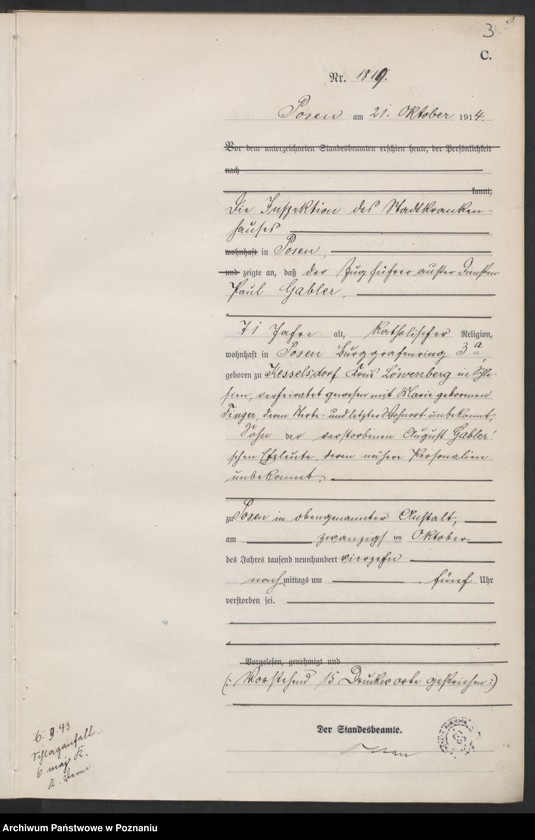 3
C.
Nr. 1819.
Posen am 21. Oktober 1914.
Vor dem unterzeichneten Standesbeamten erschien heute, der Persönlichkeit
nach
kannt,
Die Inspektion des Stadtkranken-
hauses
wohnhaft in Posen,
und zeigte an, daß der Zugführer außer Diensten
Paul Gabler,
71 Jahre alt, katholischer Religion,
wohnhaft in Posen Burggrafenring 3a,
geboren zu Kesselsdorf Kreis Löwenberg in Schle-
sien, verheiratet gewesen mit Marie geborenen
deren Sterbe- und letzter Wohnort unbekannt,
Sohn der verstorbenen August Gabler'
schen Eheleute, deren nähere Personalien
unbekannt,
zu Posen in obengenannter Anstalt,
am zwanzigsten Oktober
des Jahres tausend neunhundert vierzehn
nachmittags um fünf Uhr
verstorben sei.
Vorgelesen, genehmigt und
(: Vorstehend 15 Druckworte gestrichen :)
Der Standesbeamte.
6. 9. 43
Schlaganfall.
Archiwum Państwowe w Poznaniu